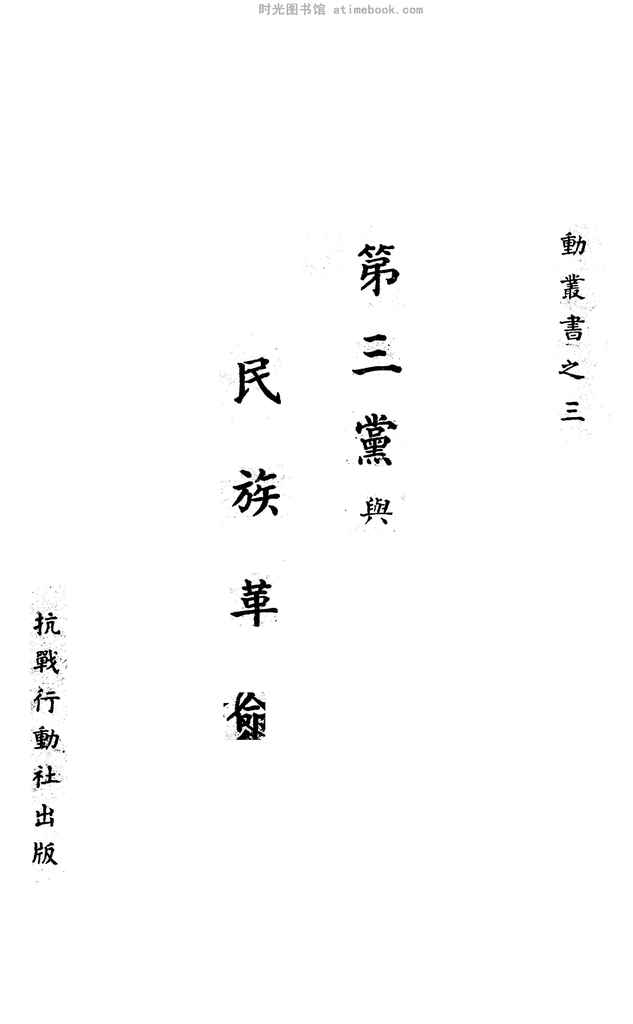 时光图书馆 atimebook.com
動叢書之三
第三黨與
民族革
抗戰行動社出版